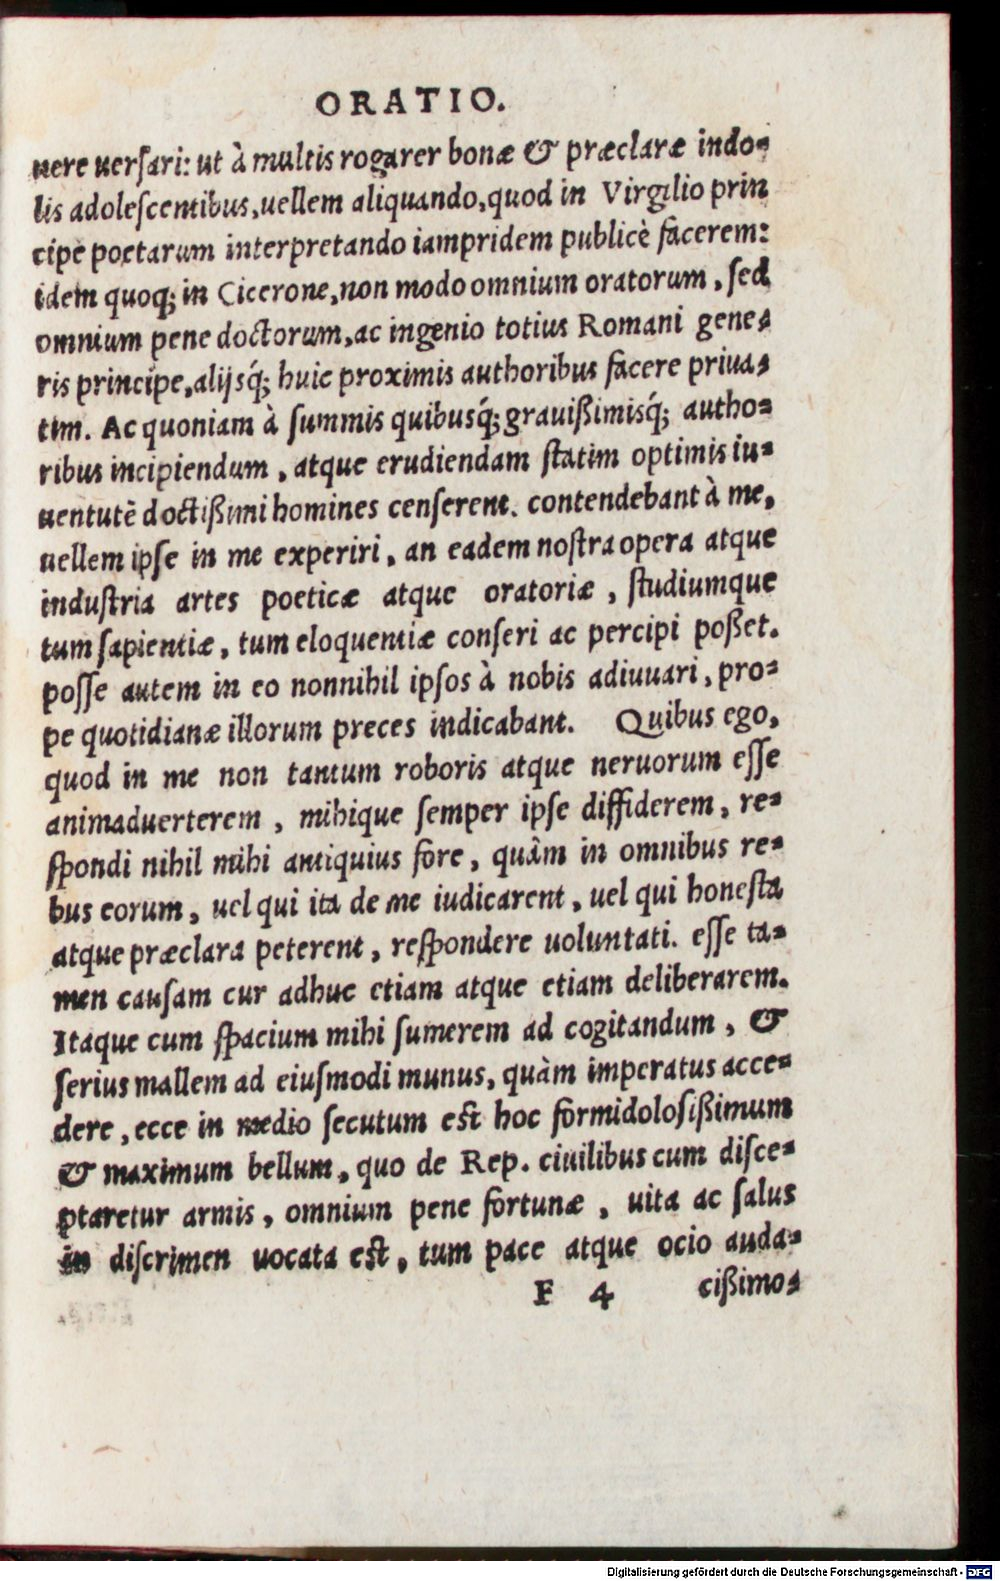 ORATIO.
uere uerſari: ut à multis rogarer bonæ & præclaræ indo-
lis adoleſcentibus, uellem aliquando, quod in Virgilio prin
cipe poetarum interpretando iampridem publicè facerem:
idem quoq; in Cicerone, non modo omnium oratorum, ſed
omnium pene doctorum, ac ingenio totius Romani gene-
ris principe, alijsq́; huic proximis authoribus facere priua-
tim. Ac quoniam à ſummis quibusq́; grauißimisq́; autho-
ribus incipiendum, atque erudiendam ſtatim optimis iu-
uentutē doctißimi homines cenſerent. contendebant à me,
uellem ipſe in me experiri, an eadem noſtra opera atque
induſtria artes poeticæ atque oratoriæ, ſtudiumque
tum ſapientiæ, tum eloquentiæ conſeri ac percipi poßet.
poſſe autem in eo nonnihil ipſos à nobis adiuuari, pro-
pe quotidianæ illorum preces indicabant. Quibus ego,
quod in me non tantum roboris atque neruorum eſſe
animaduerterem, mihique ſemper ipſe diffiderem, re-
ſpondi nihil mihi antiquius fore, quàm in omnibus re-
bus eorum, uel qui ita de me iudicarent, uel qui honeſta
atque præclara peterent, reſpondere uoluntati. eſſe ta-
men cauſam cur adhuc etiam atque etiam deliberarem.
Itaque cum ſpacium mihi ſumerem ad cogitandum, &
ſerius mallem ad eiuſmodi munus, quàm imperatus acce-
dere, ecce in medio ſecutum eſt hoc formidoloſißimum
& maximum bellum, quo de Rep. ciuilibus cum diſce-
ptaretur armis, omnium pene fortunæ, uita ac ſalus
in diſcrimen uocata eſt, tum pace atque ocio auda-
F 4 cißimo-
Digitalisierung gefördert durch die Deutsche Forschungsgemeinschaft - DFG